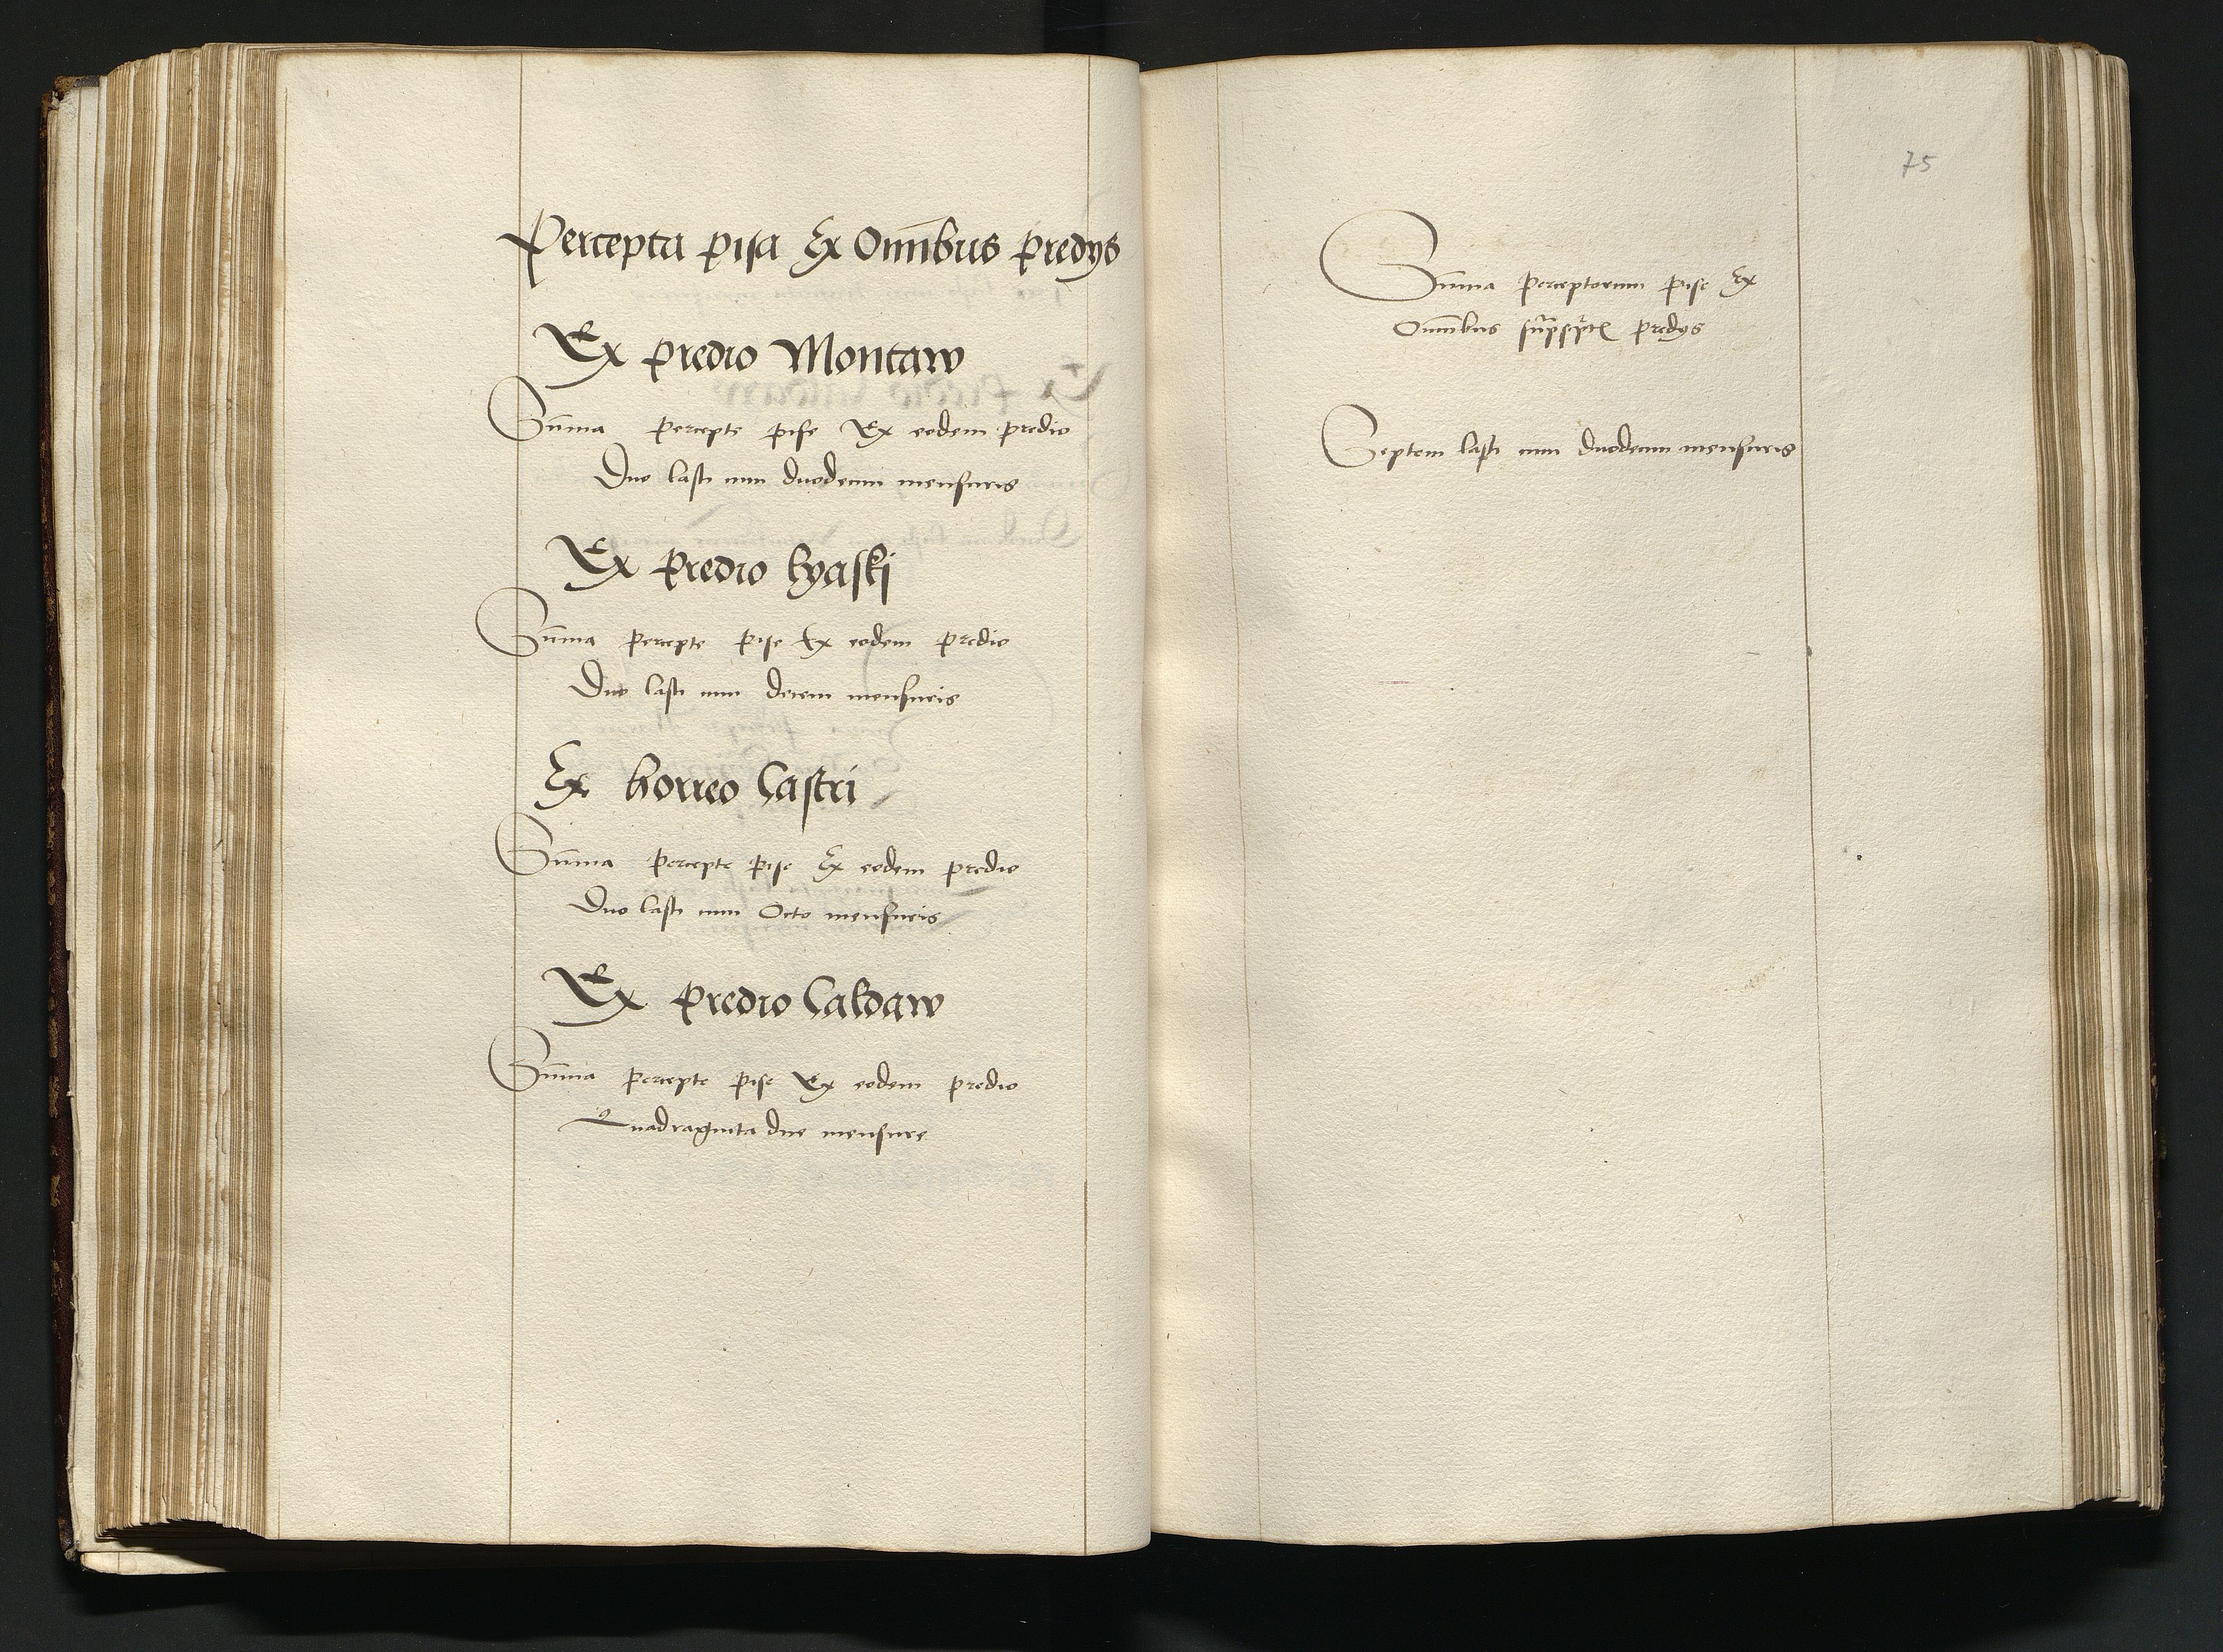 Percepta pisa Ex Omnibus predys
Ex predio Montaw
Summa percepte pise Ex eodem predio
Duo lasti cum duodecim mensuris
Ex predio lyaski
Summa percepte pise Ex eodem predio
Duo lasti cum decem mensuris
Ex horreo Castri
Summa percepte pise Ex eodem predio
Duo lasti cum Octo mensuris
Ex predio Caldaw
Summa percepte pise Ex eodem predio
Quadraginta due mensure
75
Summa perceptorum pise Ex
Omnibus predys
Septem lasti cum duodecim mensuris